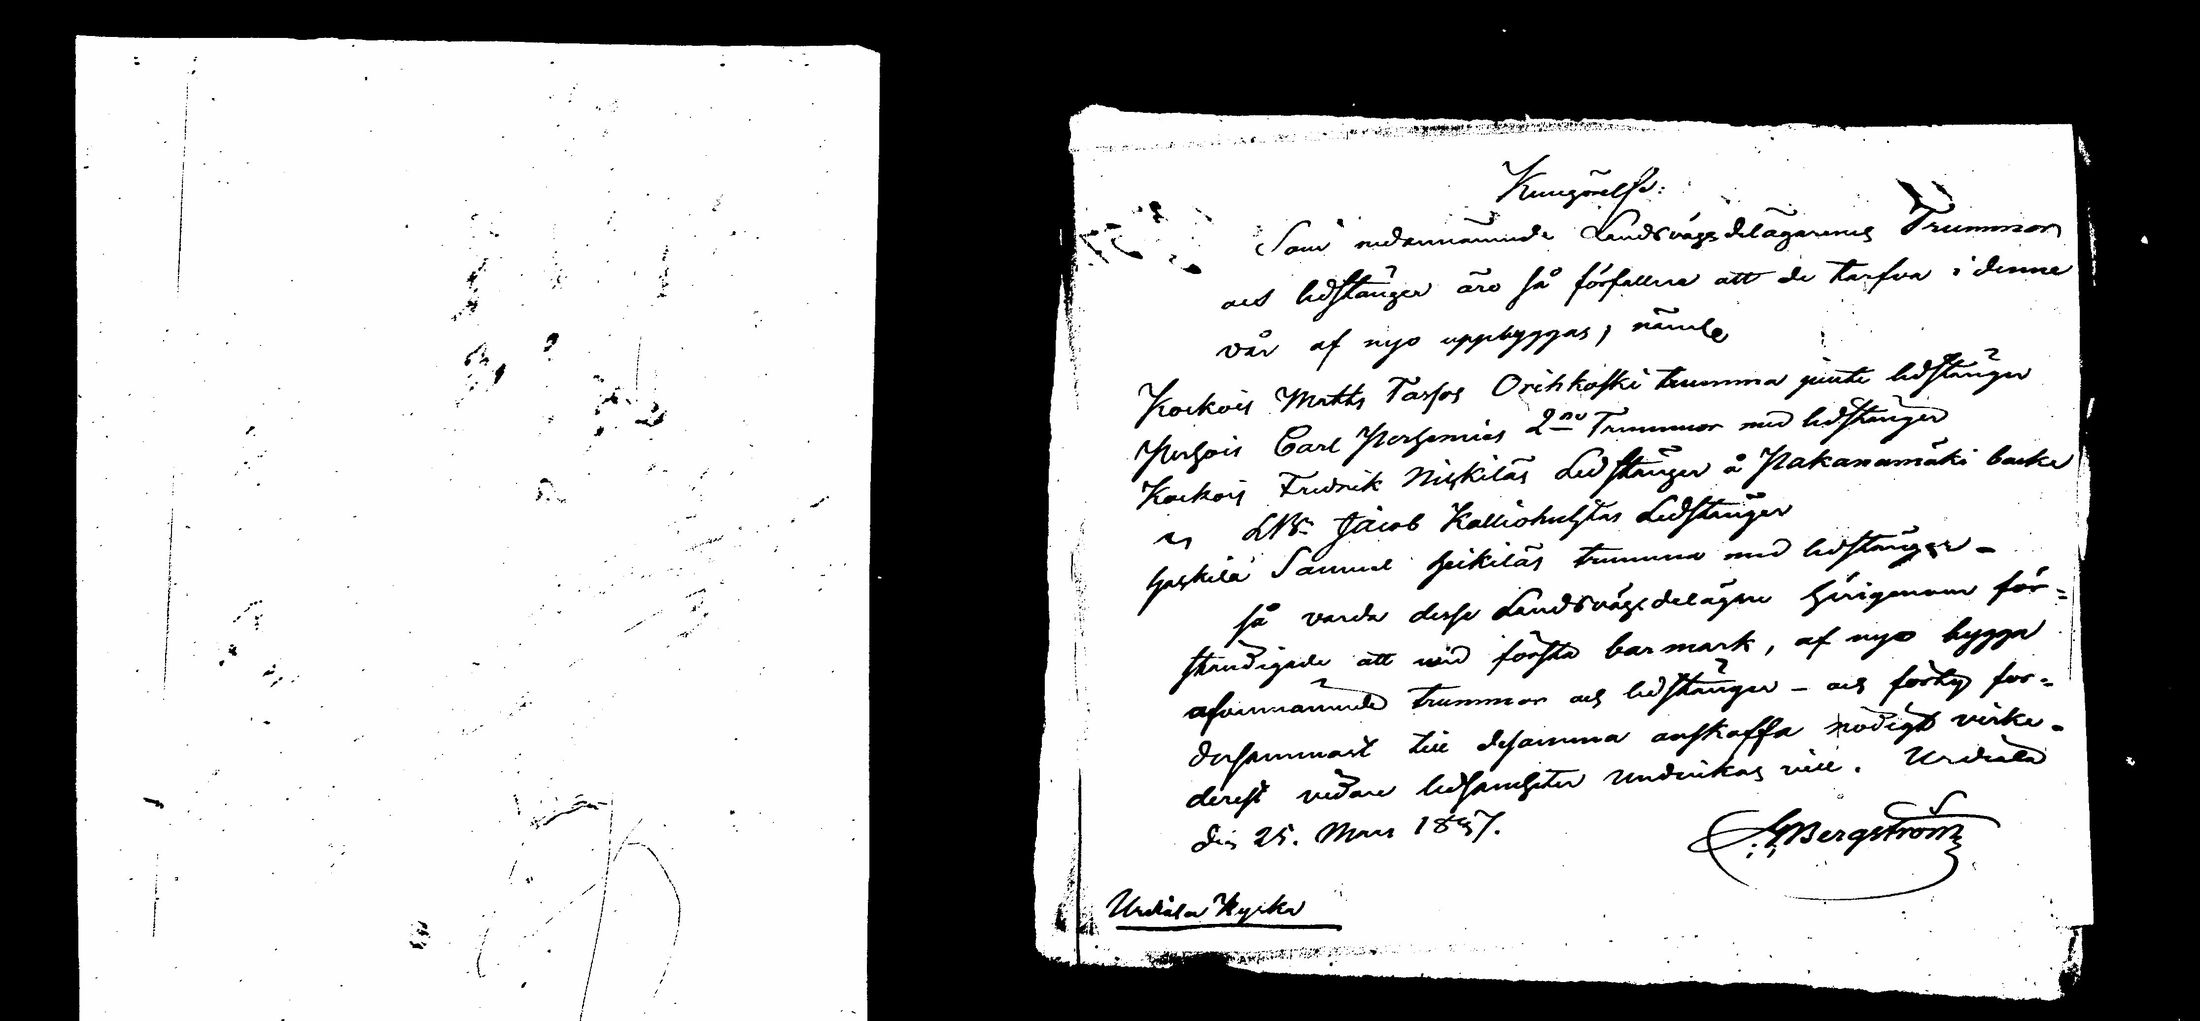 Kungörelse:
Som nedannämnde Landsvägsdelägarens Trummor
och ledstänger äro så förfallna att de tarfva i denne
vår af nyo uppbyggas, näml.
Kockois Matts Tarsos Orihkoski trumma jemte ledstänger
Carl 2ne Trummor med ledstänger
Kockois Fredrik Niskiläs Ledstänger å Pakanamäki backe
Jacob Ledstänger
Samuel Heikiläs trumma med ledstänger -
Så varda desse Landsvägsdelägare härigenom för=
ständigade att wid första barmark, af nyo bygga
ofvannämnde trummor och ledstänger - och för=
till desamma anskaffa nödigt virke -
derest vidare ledsamheter undvikas vill. Urdiala
den 25. Mars 1857.
GBergström
Urdiala Kyrka